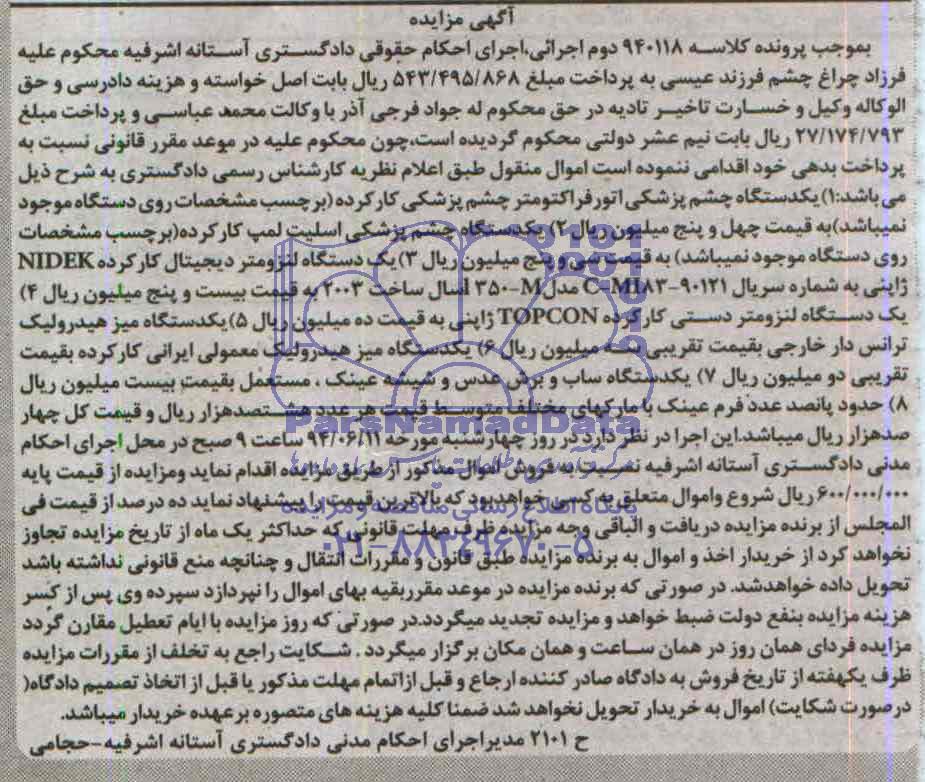 آگهی مزایده
بموجب پرونده کلاسه ۹۴۰۱۱۸ دوم اجرائی،اجرای احکام حقوقی دادگستری آستانه اشرفیه محکوم علیه
فرزاد چراغ چشم فرزند عیسی به پرداخت مبلغ ۵۴۳/۴۹۵/۸۶۸ ریال بابت اصل خواسته و هزینه دادرسی و حق
الوکاله وکیل و خسارت تاخیر تادیه در حق محکوم له جواد فرجی آذر با وکالت محمد عباسی و پرداخت مبلغ
۲۷/۱۷۴/۷۹۳ ریال بابت نیم عشر دولتی محکوم گردیده است،چون محکوم علیه در موعد مقرر قانونی نسبت به
پرداخت بدهی خود اقدامی ننموده است اموال منقول طبق اعلام نظریه کارشناس رسمی دادگستری به شرح ذیل
می باشد:۱) یکدستگاه چشم پزشکی اتورفراکتومتر چشم پزشکی کارکرده (برچسب مشخصات روی دستگاه موجود
نمیباشد)به قیمت چهل و پنج میلیون ریال ۲) یکدستگاه چشم پزشکی اسلیت لمپ کارکرده(برچسب مشخصات
روی دستگاه موجود نمیباشد) به قیمت سی و پنج میلیون ریال ۳) یک دستگاه لنزومتر دیجیتال کارکرده NIDEK
ژاپنی به شماره سریال C-MI۸۳-۹۰۱۲۱ مدل ۳۵۰-M سال ساخت ۲۰۰۳ به قیمت بیست و پنج میلیون ریال ۴)
یک دستگاه لنزومتر دستی کارکرده TOPCON ژاپنی به قیمت ده میلیون ریال ۵) یکدستگاه میز هیدرولیک
ترانس دار خارجی بقیمت تقریبی سه میلیون ریال ۶) یکدستگاه میز هیدرولیک معمولی ایرانی کارکرده بقیمت
تقریبی دو میلیون ریال ۷) یکدستگاه ساب و برش عدس و شیشه عینک ، مستعمل بقیمت بیست میلیون ریال
۸) حدود پانصد عدد فرم عینک با مارکهای مختلف متوسط قیمت هر عدد هشتصدهزار ریال و قیمت کل چهار
صدهزار ریال میباشد.این اجرا در نظر دارد در روز چهارشنبه مورخه ۹۴/۰۶/۱۱ ساعت ۹ صبح در محل اجرای احکام
مدنی دادگستری آستانه اشرفیه نسبت به فروش اموال مذکور از طریق مزایده اقدام نماید ومزایده از قیمت پایه
۶۰۰/۰۰۰/۰۰۰ ریال شروع واموال متعلق به کسی خواهدبود که بالاترین قیمت را پیشنهاد نماید ده درصد از قیمت فی
المجلس از برنده مزایده دریافت و الباقی وجه مزایده ظرف مهلت قانونی که حداکثر یک ماه از تاریخ مزایده تجاوز
نخواهد کرد از خریدار اخذ و اموال به برنده مزایده طبق قانون و مقررات انتقال و چنانچه منع قانونی نداشته باشد
تحویل داده خواهدشد. در صورتی که برنده مزایده در موعد مقرربقیه بهای اموال را نپردازد سپرده وی پس از کسر
هزینه مزایده بنفع دولت ضبط خواهد و مزایده تجدید میگردد.در صورتی که روز مزایده با ایام تعطیل مقارن گردد
مزایده فردای همان روز در همان ساعت و همان مکان برگزار میگردد . شکایت راجع به تخلف از مقررات مزایده
ظرف یکهفته از تاریخ فروش به دادگاه صادر کننده ارجاع و قبل ازاتمام مهلت مذکور یا قبل از اتخاذ تصمیم دادگاه(
درصورت شکایت) اموال به خریدار تحویل نخواهد شد ضمنا کلیه هزینه های متصوره برعهده خریدار میباشد.
ح ۲۱۰۱ مدیراجرای احکام مدنی دادگستری آستانه اشرفیه-حجامی
ParsNamadData
پایگاه اطلاع رسانی مناقصه و مزایده
۰۲۱-۸۸۳۴۹۶۷۰-۵